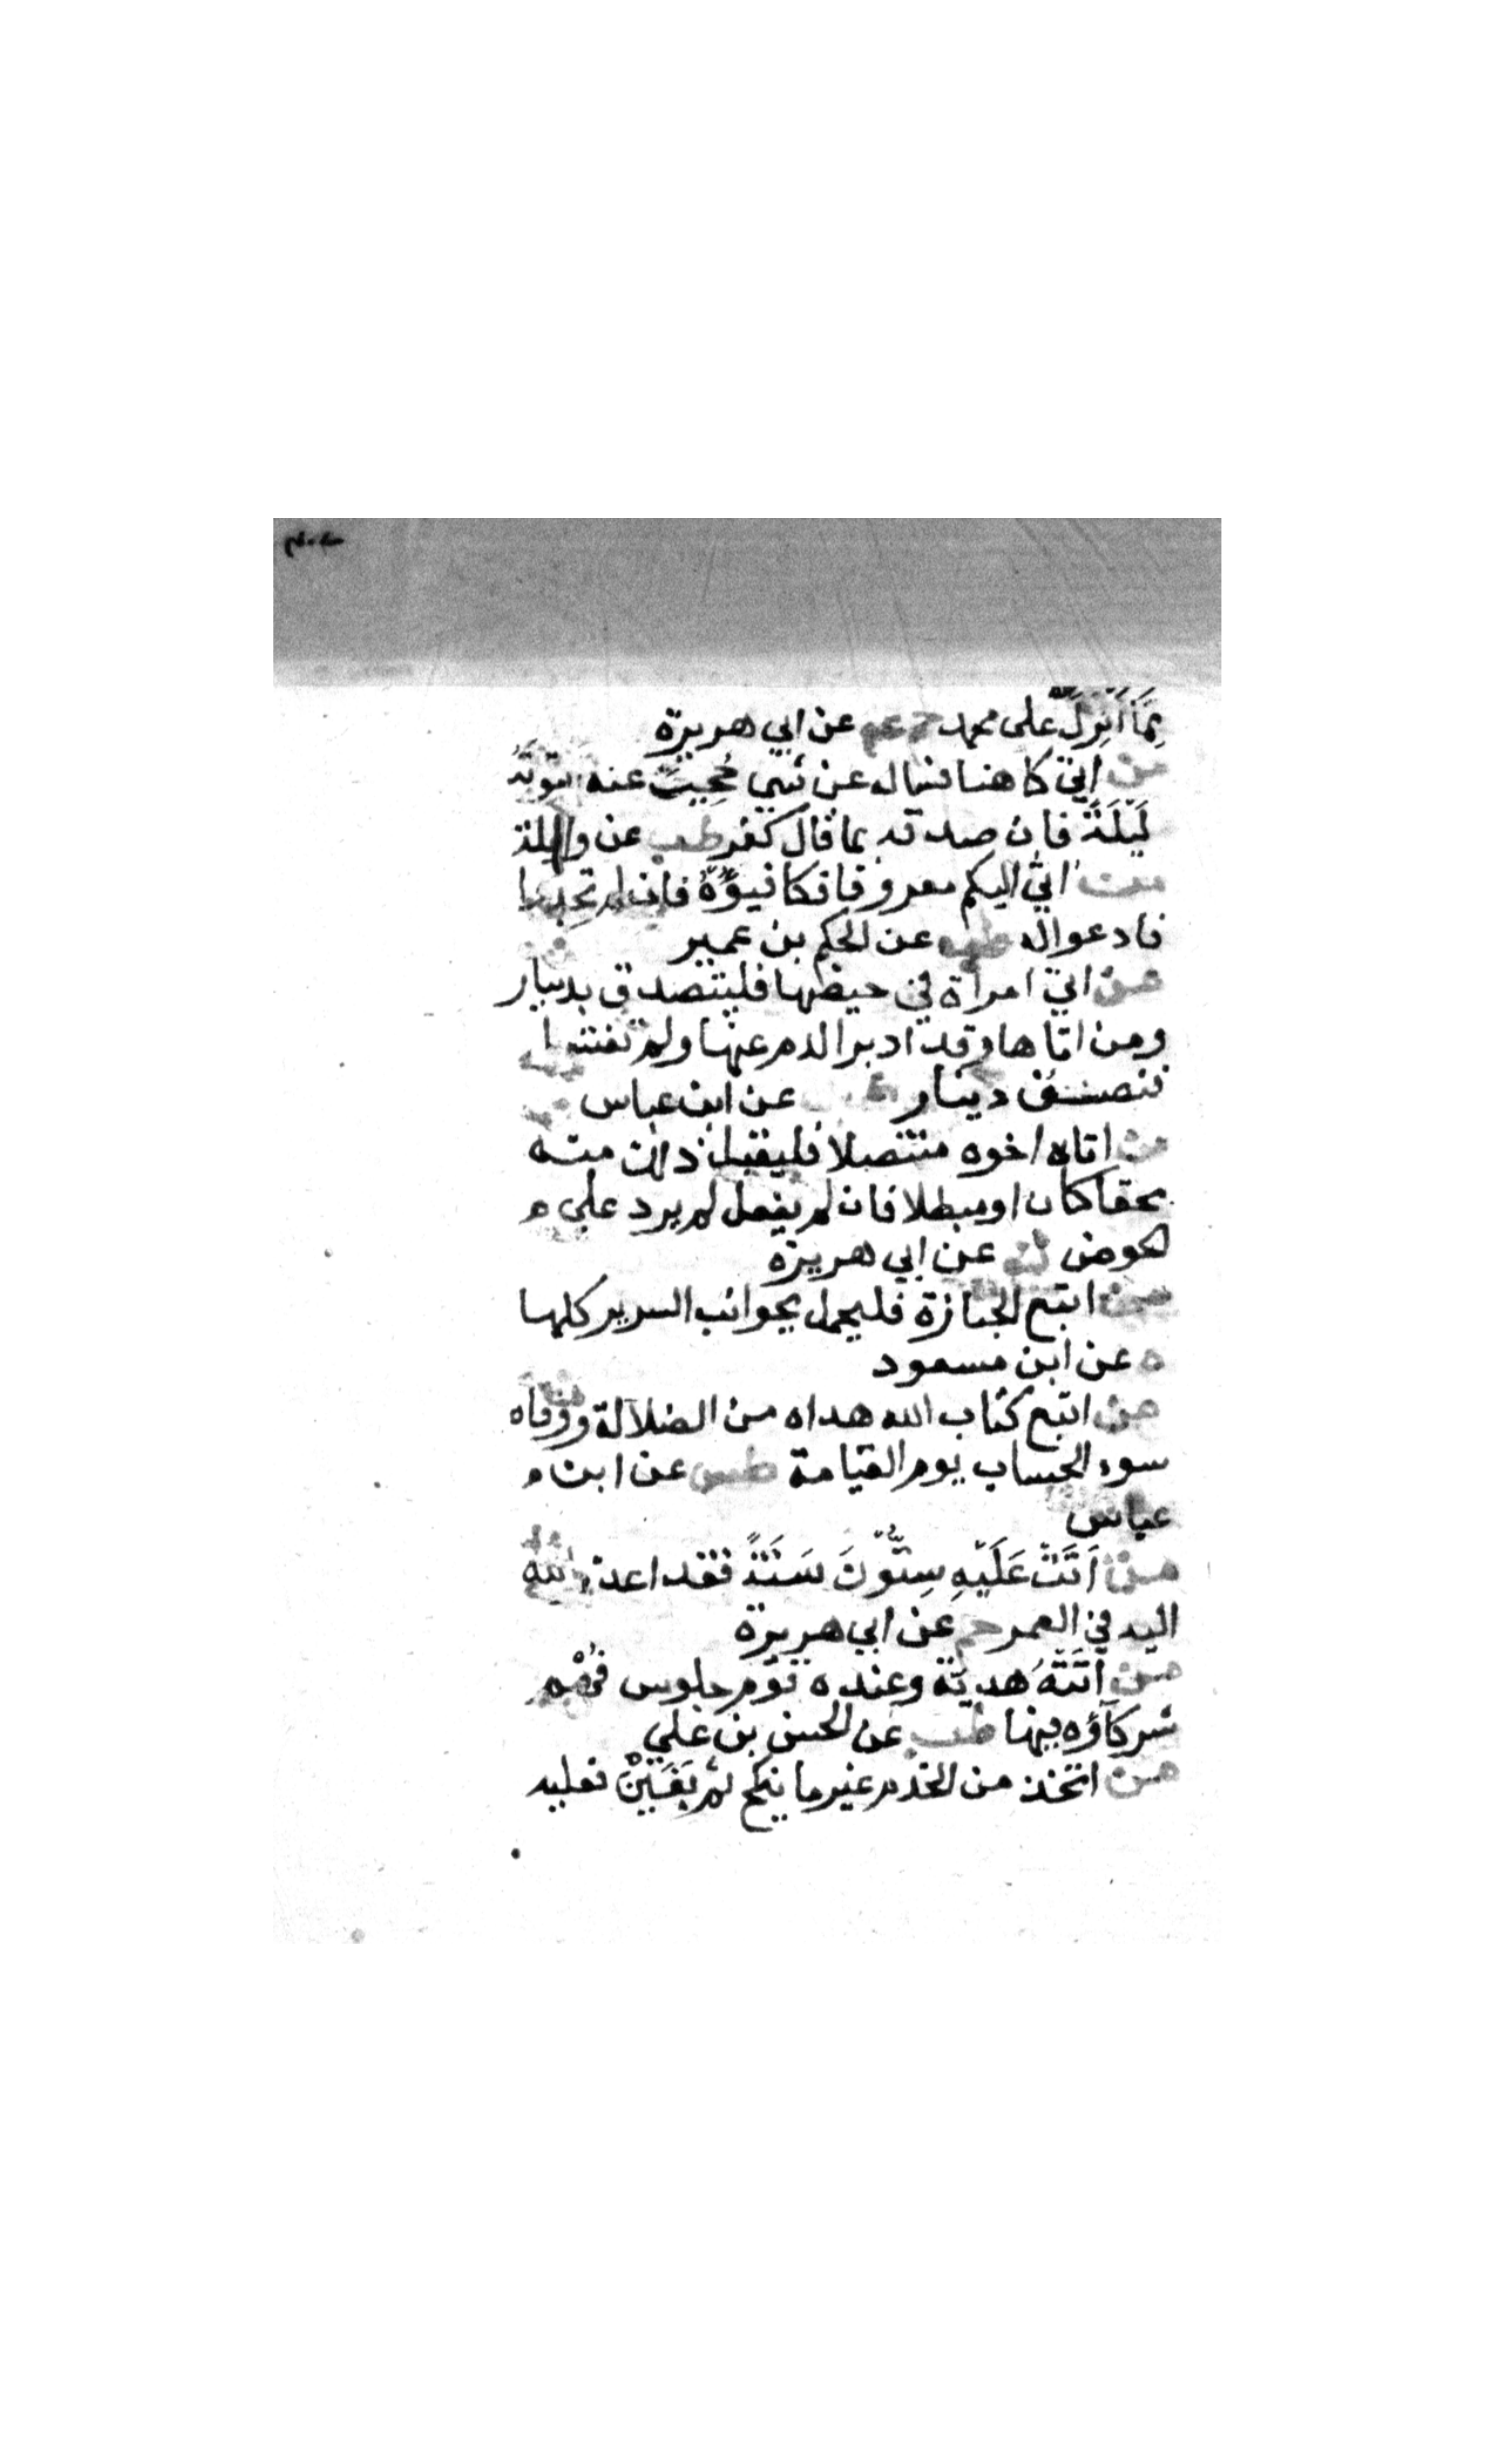 بِمَا اُنْزِلَ على محمد حم عن ابي هريرة
من اتى كاهنا فساله عن شي حُجِبَتْ عنه التوبة
لَيْلَةً فان صدقه بما قال كفر طب عن واثلة
من اتى اليكم معروفا فكافيؤهُ فان لم تجدوا
فادعوا له طب عن الحكم بن عمير
من اتى امراة في حيضها فليتصدق بدينار
ومن اتاها وقد ادبر الدم عنها ولم تغتسل
فنصف دينار طب عن ابن عباس
من اتاه اخوه متنصلا فليقبل ذلك منه
محقا كان او مبطلا فان لم يفعل لم يرد على
الحوض ك عن ابي هريرة
من اتبع الجنازة فليحمل بجوانب السرير كلها
ه عن ابن مسعود
من اتبع كتاب الله هداه من الضلالة ووقاه
سوء الحساب يوم القيامة طس عن ابن
عباس
من اَتَتْ عَلَيْهِ سِتُّونَ سَنَةً فقد اعذر الله
اليه في العمر حم عن ابي هريرة
من اَتَتْهُ هدية وعنده قوم جلوس فهُمْ
شركاؤه فيها طب عن الحسن بن علي
من اتخذ من الخدم غير ما ينكح ثم بَغَيْنَ فعليه